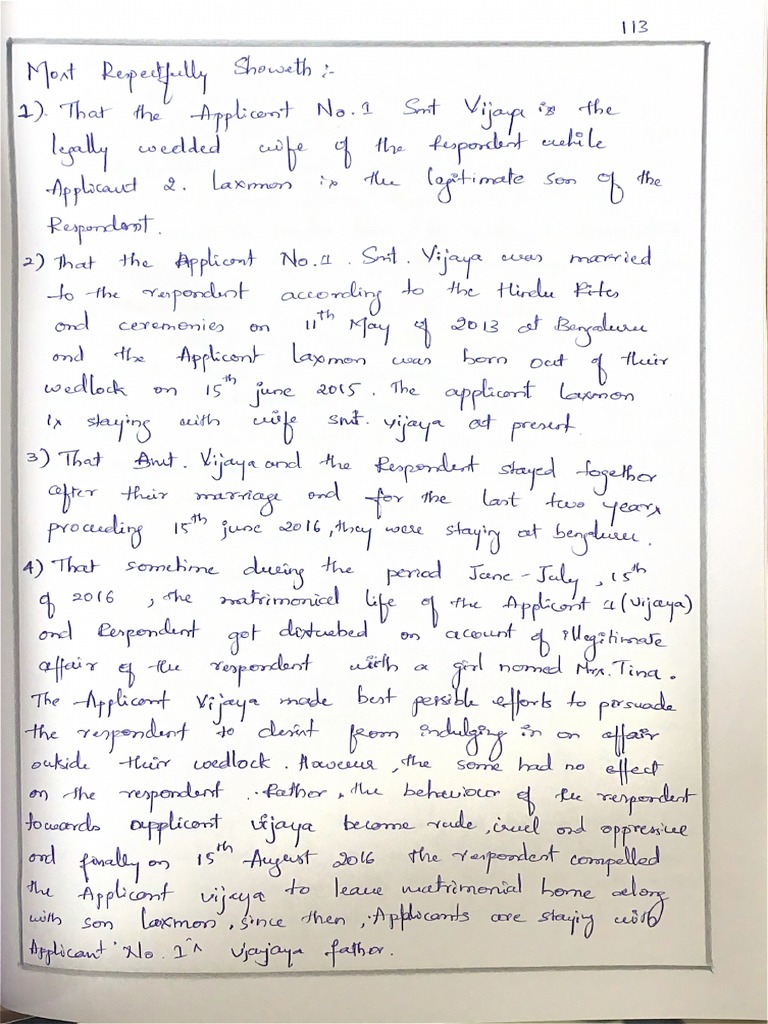 113
Most Respectfully Showeth :-
1). That the Applicant No.1 Smt Vijaya is the
legally wedded wife of the Respondent while
Applicant 2. Laxman is the legitimate son of the
Respondent.
2) That the Applicant No.1. Smt. Vijaya was married
to the respondent according to the Hindu Rites
and ceremonies on 11th May of 2013 at Bengaluru
and the Applicant Laxman was born out of their
wedlock on 15th june 2015. The applicant Laxman
is staying with wife smt. vijaya at present.
3) That Smt. Vijaya and the Respondent stayed together
after their marriage and for the last two years
proceeding 15th june 2016, they were staying at bengaluru.
4) That sometime during the period June - July, 15th
of 2016, the matrimonial life of the Applicant 1 (Vijaya)
and Respondent got distubed on account of illegitimate
affair of the respondent with a girl named Mrs. Tina.
The Applicant Vijaya made best possible efforts to persuade
the respondent to desist from indulging in an affair
outside their wedlock. However, the same had no effect
on the respondent. Rather, the behaviour of the respondent
towards applicant vijaya become rude, cruel and oppressive
and finally on 15th August 2016 the respondent compelled
the Applicant vijaya to leave matrimonial home along
with son laxman, since then, Applicants are staying with
Applicant No. 1's vjajaya father.